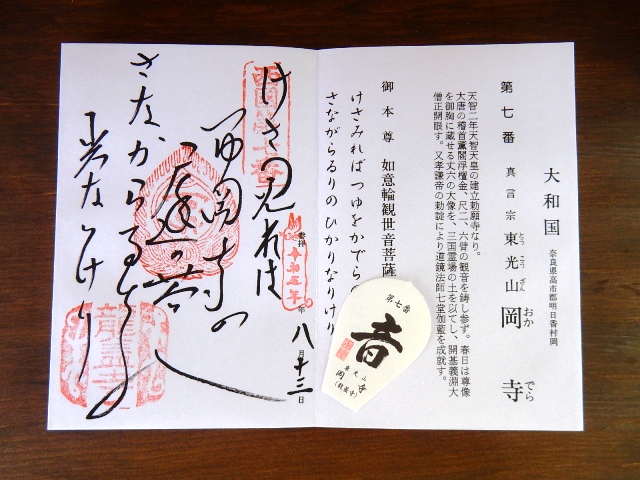 大和国
奈良県高市郡明日香村岡
第七番 真言宗 東光山 岡寺
とうこうざん おか でら
天智二年天智天皇の建立勅願寺なり。
大唐の稽首薫閣浮檀金、尺二、六臂の観音を鋳し参ず。春日は尊像
を御胸に蔵せる丈六の大像を、三国霊場の土を以てし、開基義淵大
僧正開眼す。又孝謙帝の勅諚により道鏡法師七堂伽藍を成就す。
御本尊 如意輪観世音菩薩
けさみればつゆをかでらの
さながらるりのひかりなりけり
第七番
東光山
岡寺
(龍蓋寺)
西国第七番
けさ見れは
つゆ岡寺の
庭の苔
さなからるりの
光なりけり
龍蓋寺
参拝 令和三年 八月十三日